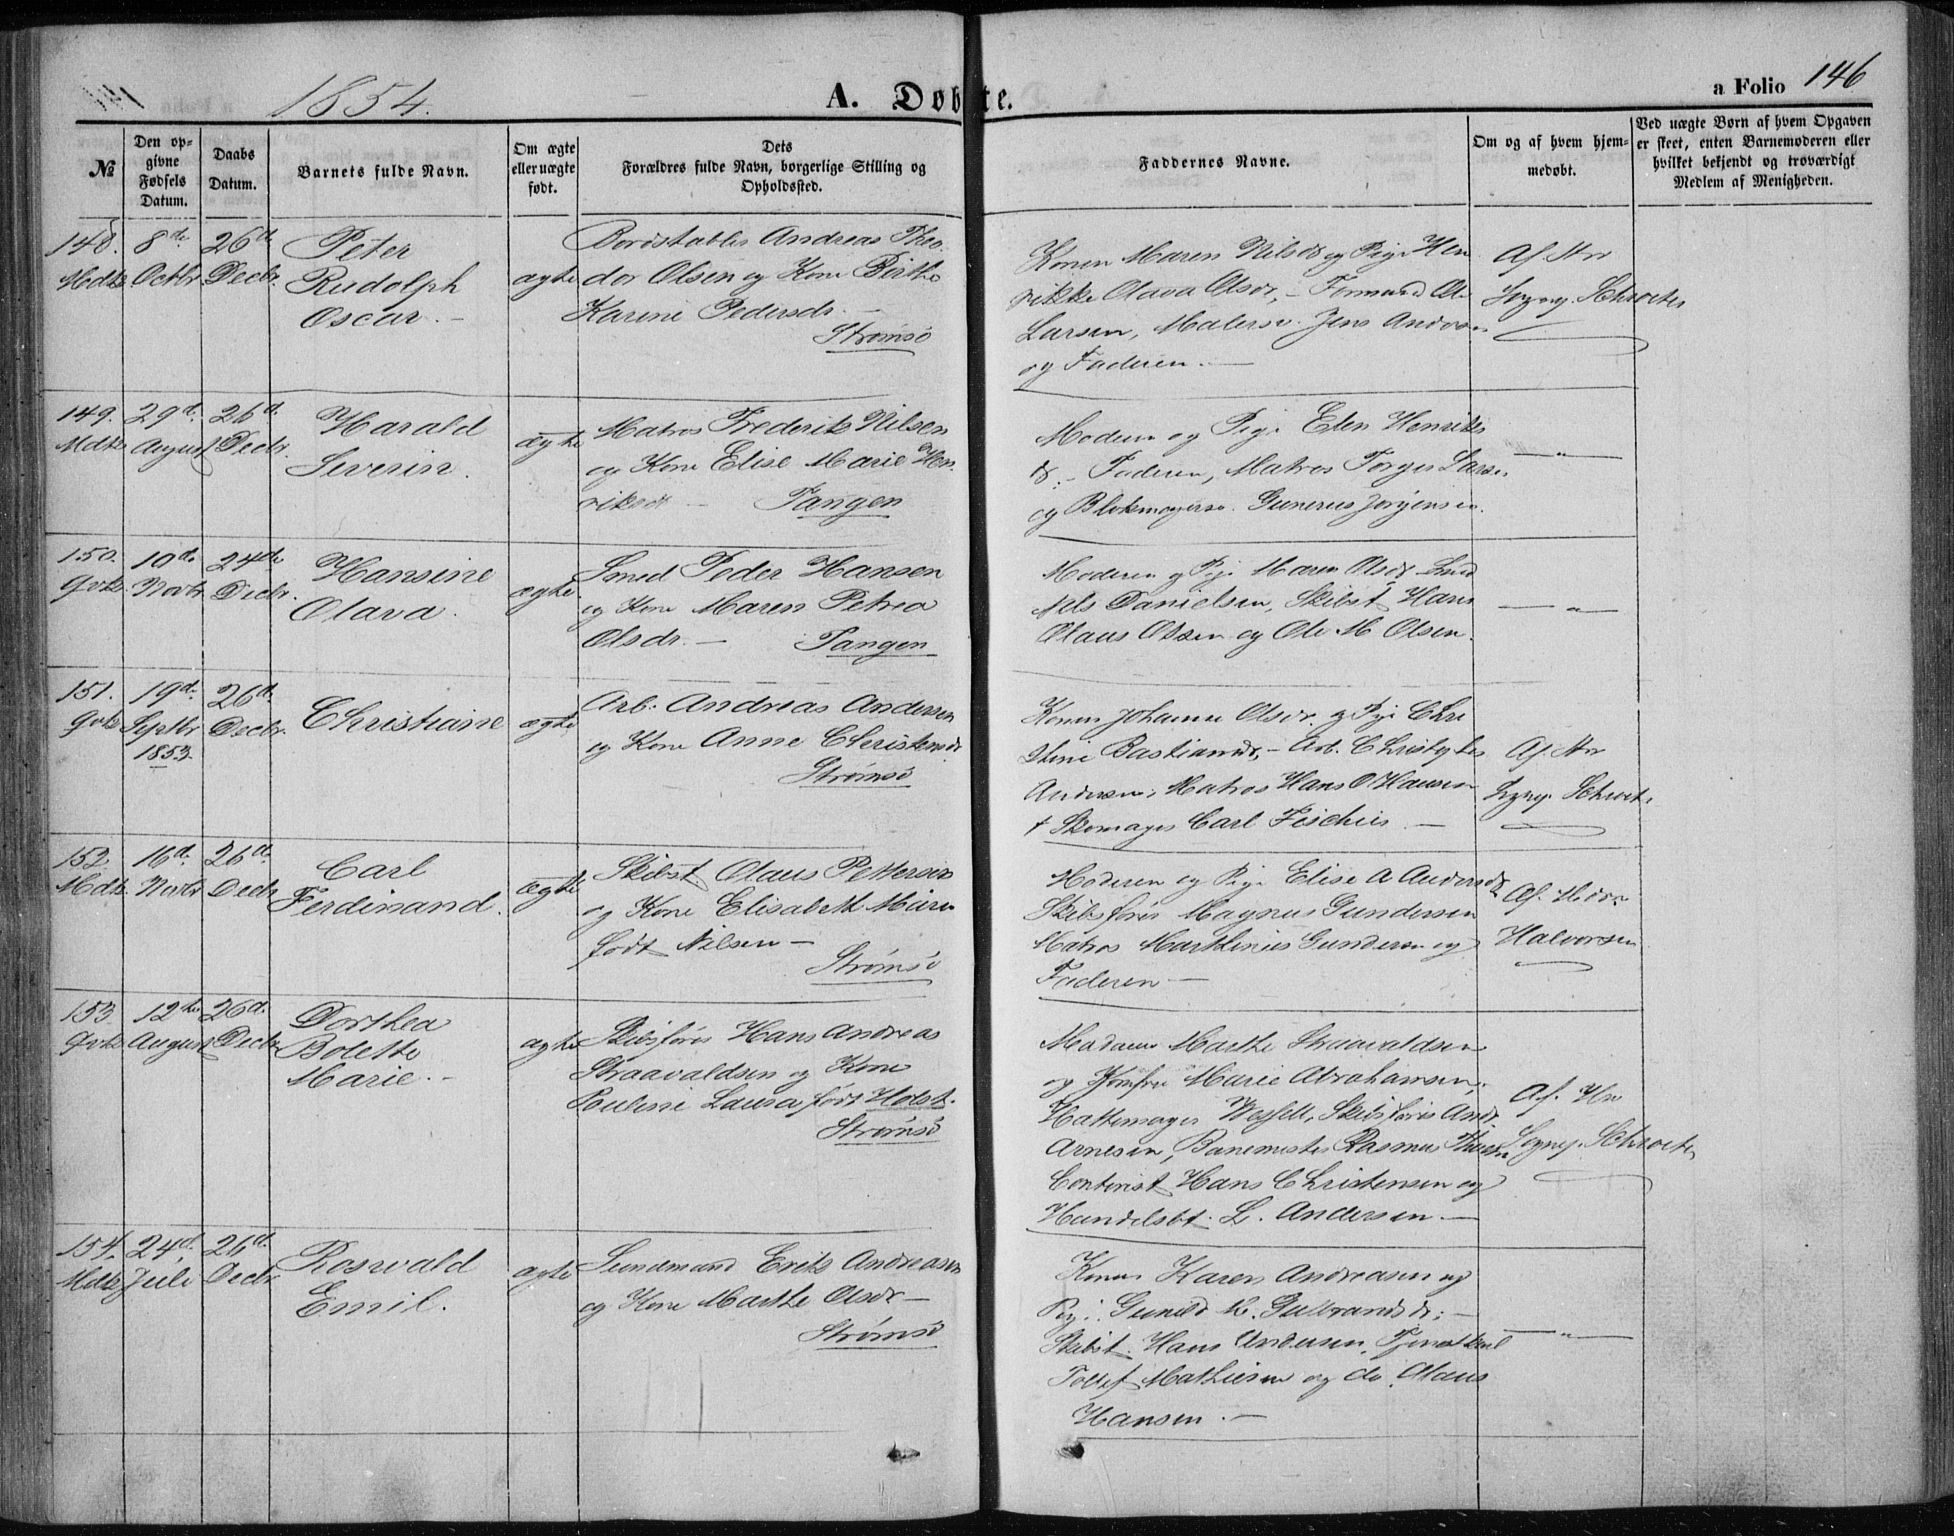 1854.
A. Døbte.
a Folio 146
№
Den op-
givne
Fødsels
Datum.
Daabs
Datum.
Barnets fulde Navn.
Om ægte
eller uægte
født.
Dets
Forældres fulde Navn, borgerlige Stilling og
Opholdssted.
Faddernes Navne.
Om og af hvem hjem-
medøbt.
Ved uægte Børn af hvem Opgaven
er skeet, enten Barnemoderen eller
hvilket bekjendt og troværdigt
Medlem af Menigheden.
148.
Mdk
8de
Octbr
26d.
Decbr.
Peter
Rudolph
Oscar. -
ægte
Bordstabler Andreas Theo-
dor Olsen og Kone Birthe
Karine Pedersdr. -
Strømsø
Konen Maren Nilsdr og Pige Hen
rikke Olava Olsdr, - Formand Ole
Larsen, Malersv. Jens Andersen
og Faderen. -
Af Hr
Sogny. Schroeter
149.
Mdk
29d.
August
26d.
Decbr.
Harald
Severin.
ægte
Matros Frederik Nilsen
og Kone Elise Marie Hen
riksdr - Tangen
Moderen og Pige Elen Henriks
dr. - Faderen, Matros Torger Larsen
og Blokmagersv. Gunerus Jørgensen.
— " —
150.
Qvk
19d.
Novbr
24de
Decbr.
Hansine
Olava.
ægte
Smed Peder Hansen
og Kone Maren Petrea
Olsdr. - Tangen
Moderen og Pige Maren Olsdr
Nils Danielsen, Skibst. Hans
Olaus Olsen og Ole M. Olsen.
— " —
151.
Qvk
19d.
Septbr
1853.
26d.
Decbr.
Christiane
ægte
Arb. Andreas Andersen
og Kone Anne Christensdr
Strømsø
Konen Johanne Olsdr. og Pige Chri
stine Bastiansdr, - Arb. Christopher
Andersen, Matros Hans O Hansen
+ Skomager Carl Fischer. -
Af Hr
Sogny. Schroeter
152.
Mdk.
16d.
Novbr
26d.
Decbr
Carl
Ferdinand.
ægte
Skibst. Olaus Pettersen
og Kone Elisabeth Marie
født Nilsen -
Strømsø
Moderen og Pige Elise A Andersdr
Skibsfører Magnus Gundersen
Matros Marthinius Gundersen og
Faderen -
Af
Halvorsen
153
Qvk
12te
August
26d.
Decbr
Dorthea
Bolette
Marie. -
ægte
Skibsfører Hans Andreas
Straavaldsen og Kone
Pauline Laura født Holst.
Strømsø
Madame Marthe Straavaldsen
og Jomfru Marie Abrahamsen,
Hattemager Wessell, Skibsfører Andr.
Arnesen, Banemester Rasmus
Contorist Hans Christensen og
Handelsbt. L. Andersen. -
Af Hr
Sogny. Schroeter
154.
Mdk
24d.
Juli
26d.
Decbr
Roswald
Emil.
ægte
Sundmand Erik Andreasen
og Kone Marthe Olsdr -
Strømsø
Konen Karen Andreasen og
Pige Gunild K. Gulbrandsdr; -
Skibst. Hans Andersen, Tjenestkarl
Tollef Mathisen og do. Olaus
Hansen. -
— " —